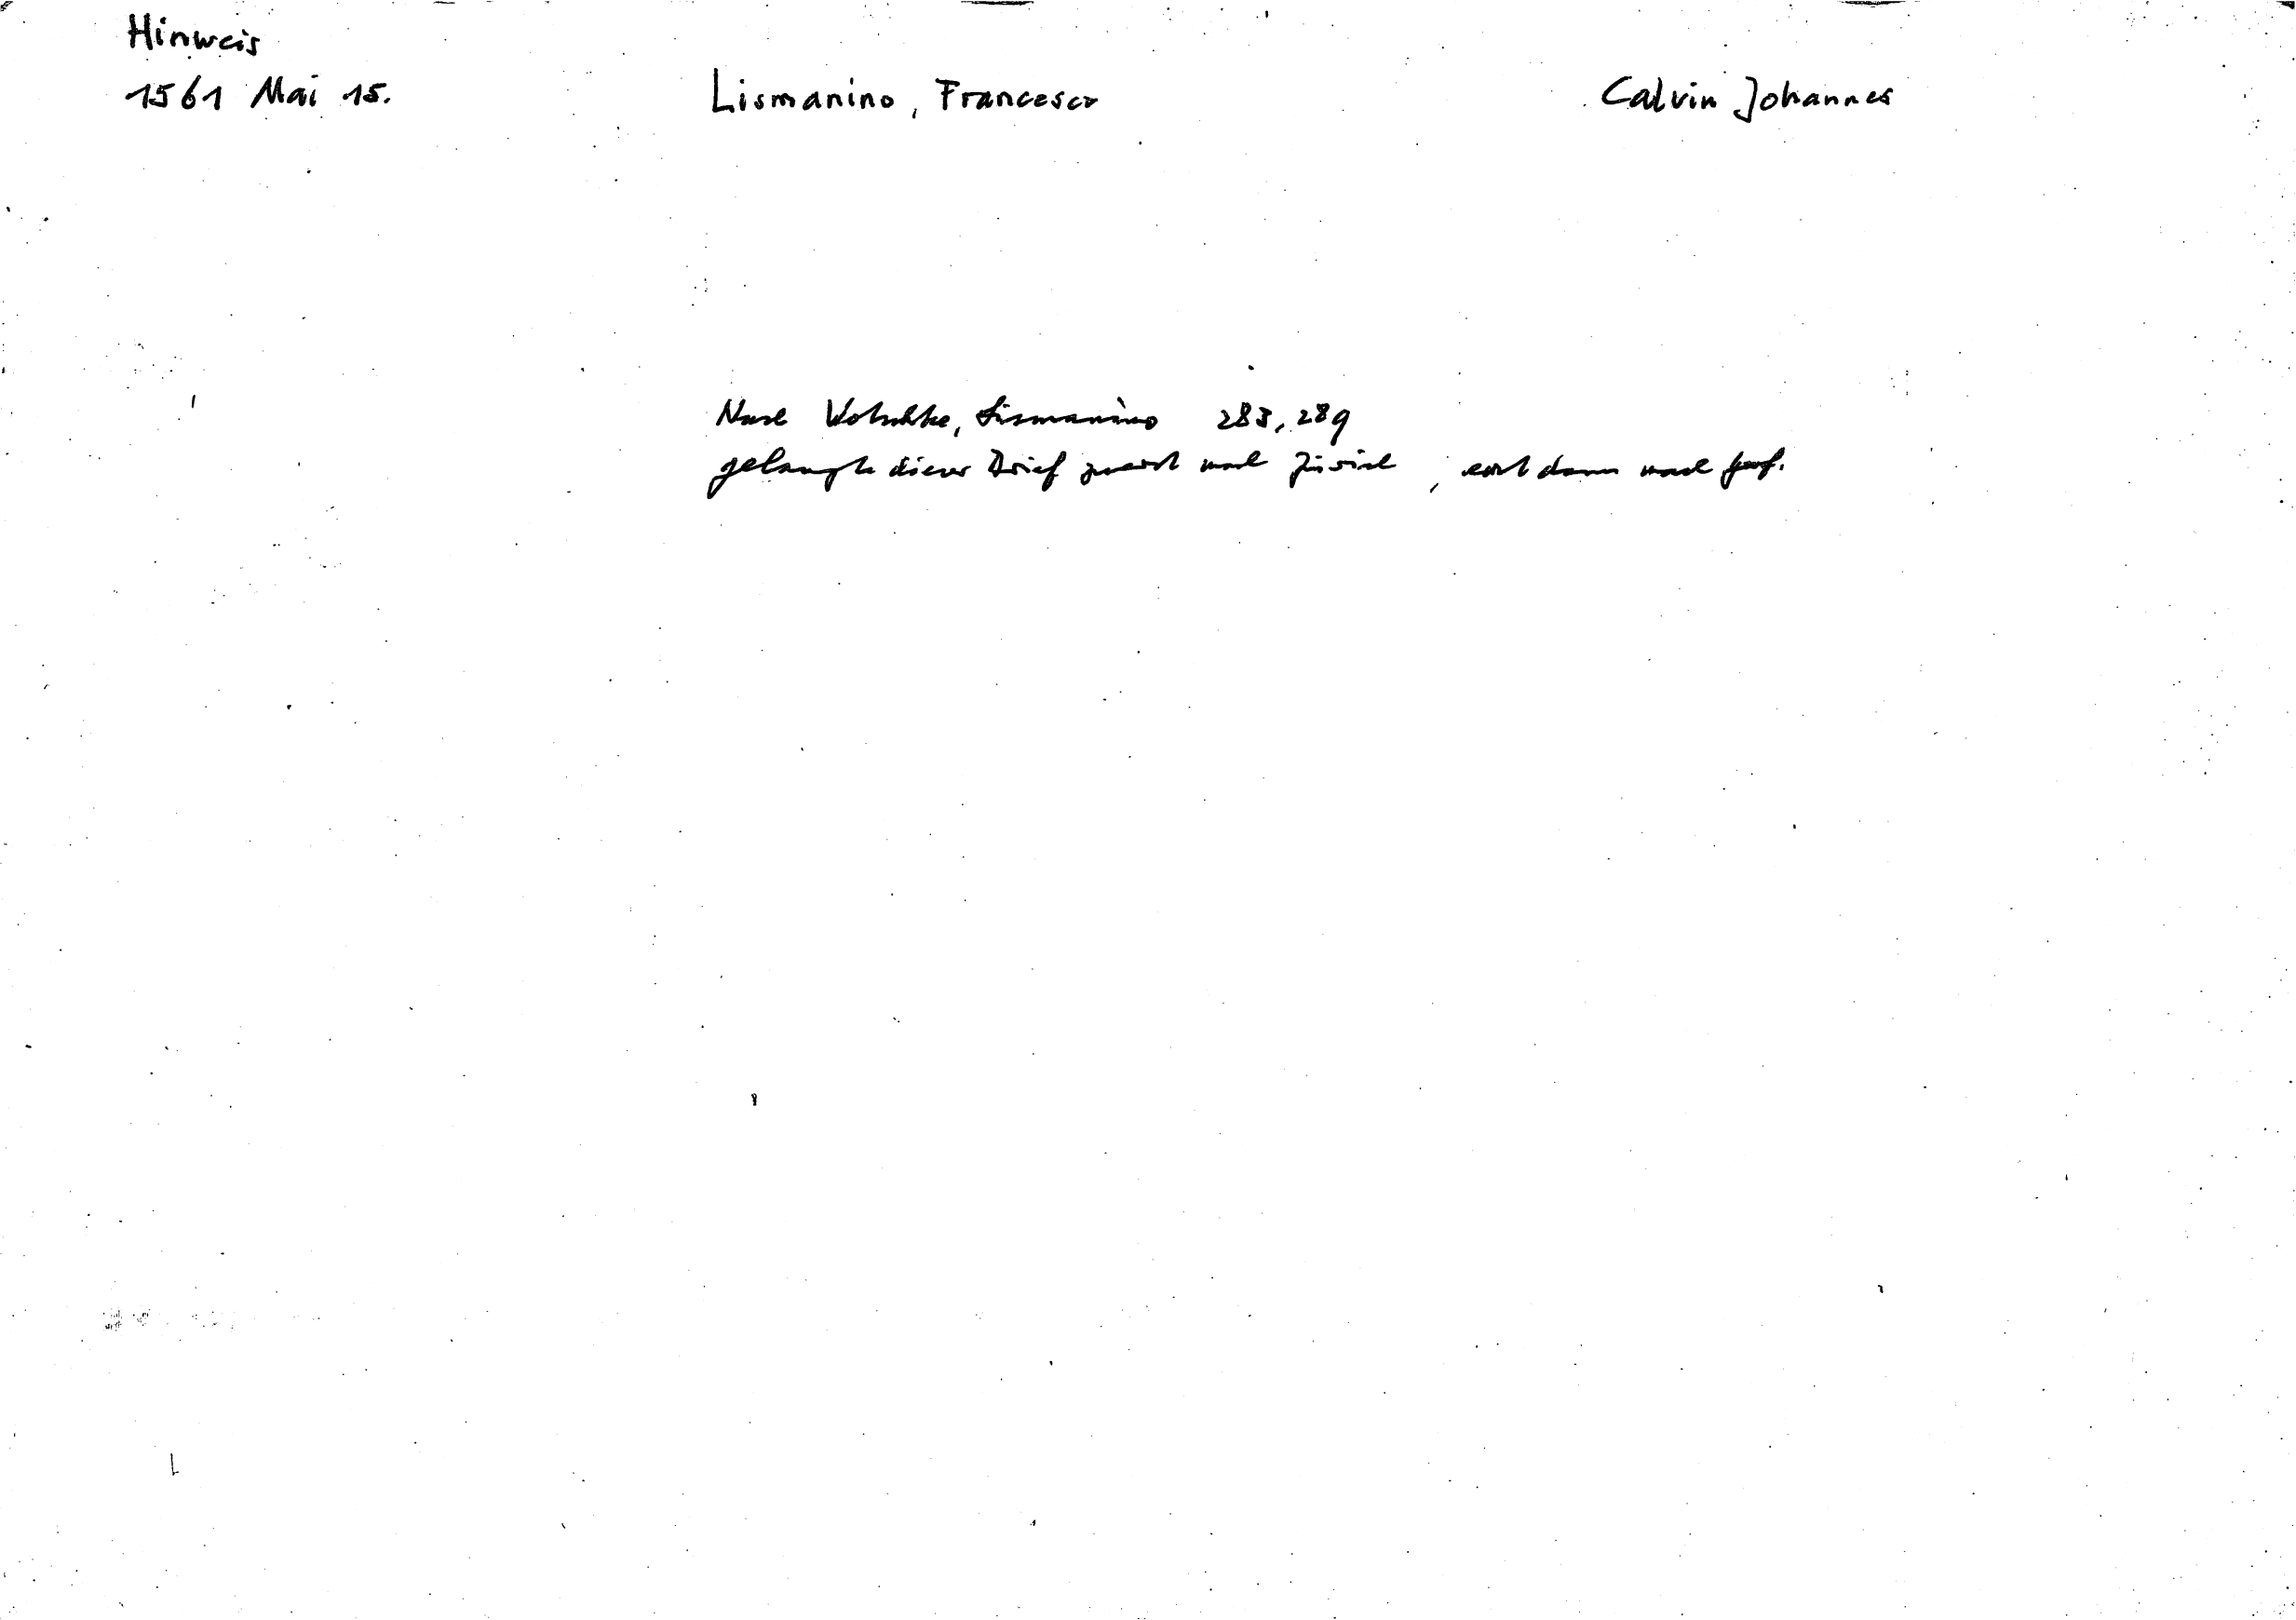 Hinweis
1561 Mai 15. Lismanino, Francesco Calvin Johannes
Nach Wotschke, Lismanino 283, 289
gelangte dieser Brief zuerst nach Zürich, erst dann nach Genf.